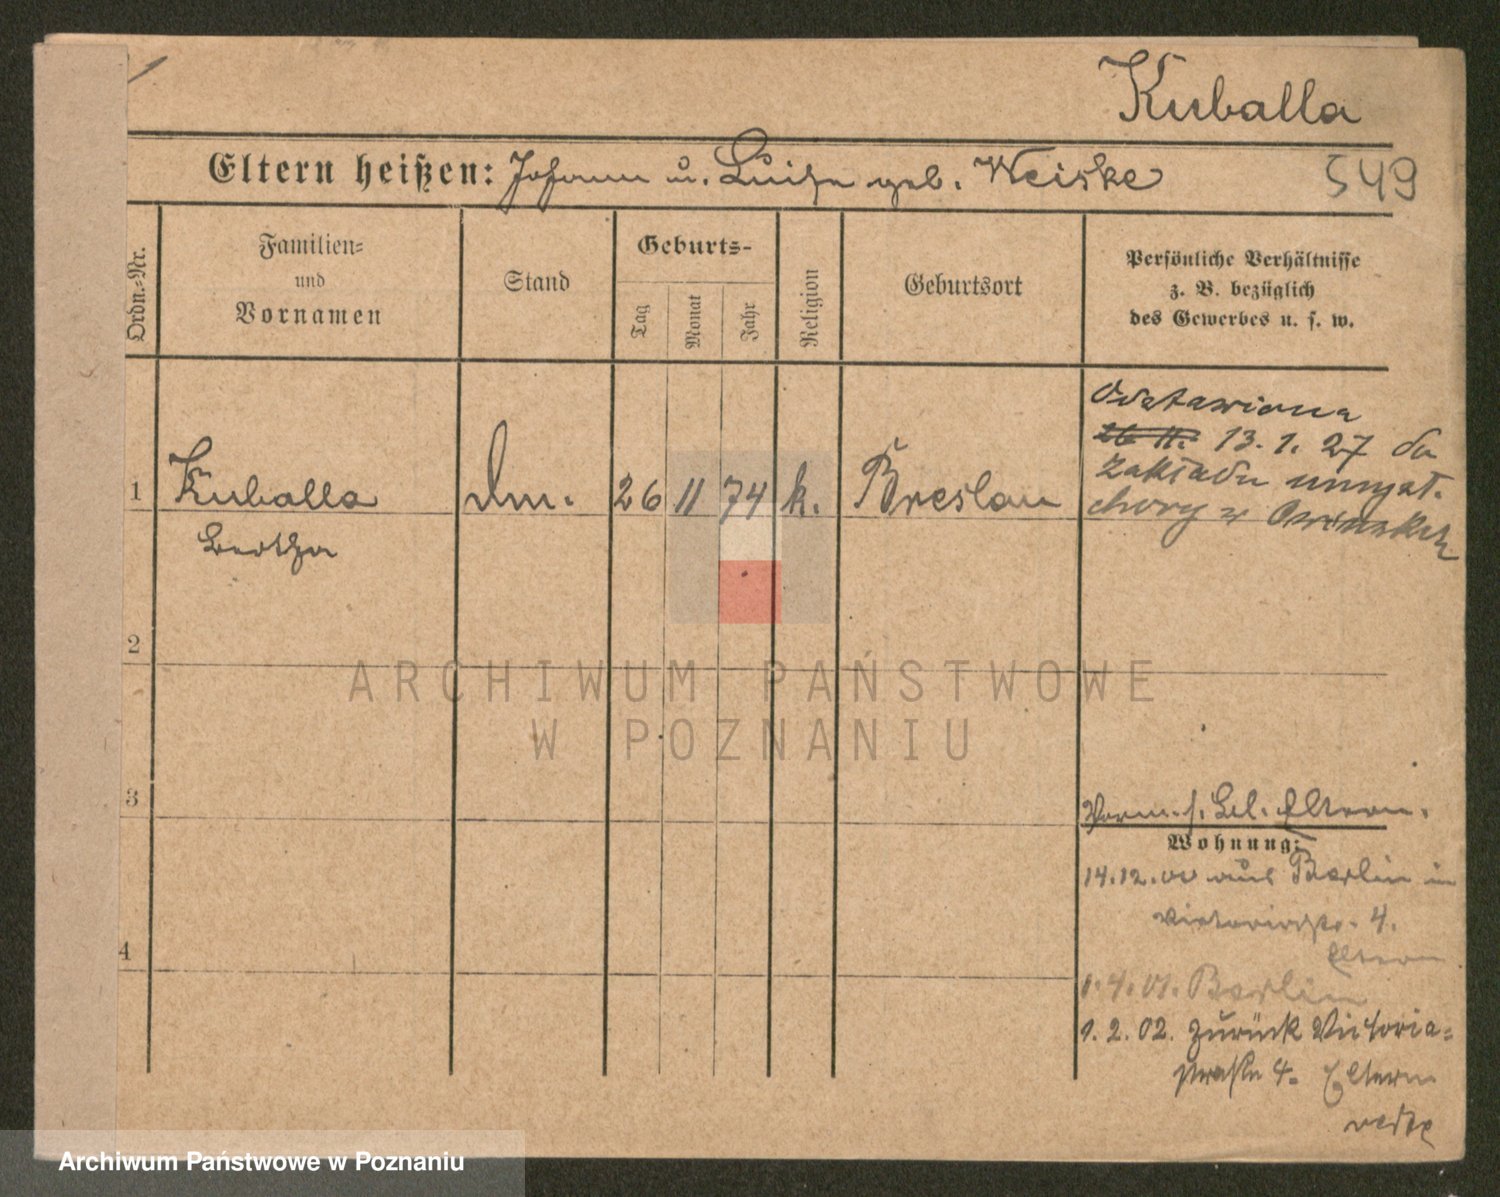 Kuballa
Eltern heißen: Johann u. Luise geb. Weiske
549
Ordn.-Nr.
Familien-
und
Vornamen
Stand
Geburts-
Tag
Monat
Jahr
Religion
Geburtsort
Persönliche Verhältnisse
z. B. bezüglich
des Gewerbes u. s. w.
Odstawiona
26 11. 13.1.27 do
Zakładu umysł.
chory w Owinskach
1 Kuballa 26 11 74 k. Breslau
Bertha
2
ARCHIWUM PAŃSTWOWE
W POZNANIU
3
Vorm. s. Bl. Eltern.
Wohnung:
14.12.00 aus Berlin in
Victoriastr. 4.
Eltern
4
1.4.01. Berlin
1.2.02. zurück Victoria-
straße 4. Eltern
Archiwum Państwowe w Poznaniu